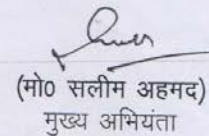 (मो० सलीम अहमद)
मुख्य अभियंता